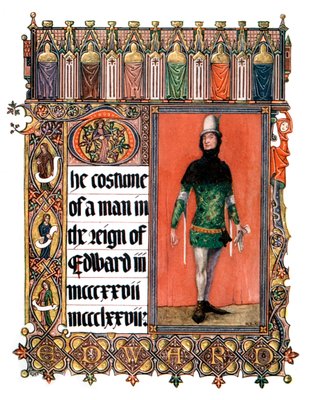 The costume
of a man in
the reign of
Edward iii
mcccxxvii
mccclxxvii:
EDWARD